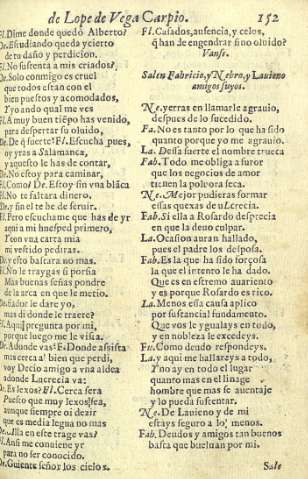 de Lope de Vega Carpio. 152
Fl. Dime donde quedó Alberto?
De. Estudiando queda y cierto
de tu daño y perdicion.
Fl. No sustenta a mis criados?
De. Solo conmigo es cruel
que todos estan con el
bien puestos y acomodados,
Y yo ando qual me ves
Fl. A muy buen tiēpo has venido,
para despertar su oluido,
De. De q̄ suerte? Fl. Escucha pues,
oy yras a Salamanca,
y aquesto le has de contar,
De. No estoy para caminar,
Fl. Como? De. Estoy sin vna blāca
Fl. No te faltara dinero.
De. y sin el te he de seruir.
Fl. Pero escuchame que has de yr
aqui a mi huesped primero,
Y con vna carta mia
mi vestido pediras.
De. y esto bastara no mas.
Fl. No le traygas si porfia
Mas buenas señas pondre
de la arca en que le metio.
De. señor le dare yo,
mas di donde le traere?
Fl. Aqui pregunta por mi,
porque luego me le vista.
De. Adonde vas? Fl. Donde assista
mas cerca al bien que perdi,
voy Decio amigo a vna aldea
adonde Lucrecia va:
De. Es lexos? Fl. Cerca sera
Puesto que muy lexos sea,
aunque siempre oi dezir
que es media legua no mas
De. alla en este trage vas?
Fl. Ansi me conuiene yr
para no ser conocido.
De. Guiente señor los cielos.
Fl. Casados, ausencia, y celos,
q̄ han de engendrar sino oluido?
Vanse.
Salen Fabricio, y Nebro, y Lauieno
amigos suyos.
Ne. yerras en llamarle agrauio,
despues de lo sucedido.
Fa. No es tanto por lo que ha sido
quanto porque yo me agrauio.
La. Dessa suerte el nombre trueca
Fab. Todo me obliga a furor
que los negocios de amor
tienen la poluora seca.
Ne. Mejor pudieras formar
essas quexas de Lucrecia.
Fab. Si ella a Rosardo desprecia
en que la deuo culpar.
La. Ocasion auran hallado,
pues el padre los desposa.
Fab. Es la que ha sido forçosa
la que el intento le ha dado.
Que es en estremo auariento
y es porque Rosardo es rico.
La. Menos essa causa aplico
por sustancial fundamento.
Que vos le ygualays en todo,
y en nobleza le excedeys.
Fa. Como deudo respondeys.
La. y aqui me hallareys a todo,
Y no ay en todo el lugar
quanto mas en el linage
hombre que mas se auentaje
y lo pueda sustentar.
Ne. De Lauieno y de mi
estays seguro a lo menos.
Fab. Deudos y amigos tan buenos
basta que bueluan por mi.
Sale